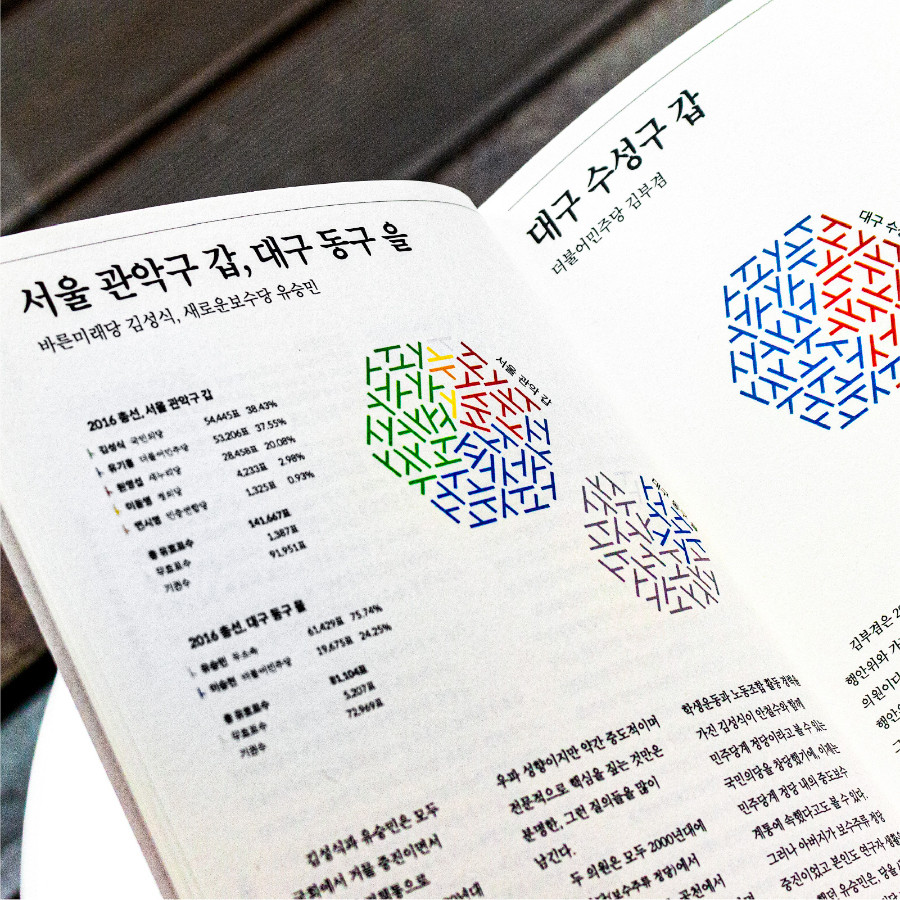 서울 관악구 갑, 대구 동구 을
바른미래당 김성식, 새로운보수당 유승민
2016 총선, 서울 관악구 갑
김성식 국민의당 54,445표 38.43%
유기홍 더불어민주당 53,206표 37.55%
원영섭 새누리당 28,458표 20.08%
이동영 정의당 4,233표 2.98%
연시영 민중연합당 1,325표 0.93%
총 유효표수 141,667표
무효표수 1,387표
기권수 91,951표
2016 총선, 대구 동구 을
유승민 무소속 61,429표 75.74%
이승천 더불어민주당 19,675표 24.25%
총 유효표수 81,104표
무효표수 5,207표
기권수 72,969표
서울 관악 갑
김성식과 유승민은 모두
국회에서 거물 중진이면서
우파 성향이지만 약간 중도적이며
전문적으로 핵심을 짚는 것만은
분명한, 그런 질의들을 많이
남긴다.
두 의원은 모두 2000년대에
(보수주류 정당)에서
공천에서
학생운동과 노동조합 활동 경력을
가진 김성식이 안철수와 함께
민주당계 정당이라고 볼 수 있는
국민의당을 창당했기에, 이제는
민주당계 정당 내의 중도보수
계통에 속했다고도 볼 수 있다.
그러나 아버지가 보수주류 정당
중진이었고 본인도 연구자 생활을
했던 유승민은, 당을
대구 수성구 갑
더불어민주당 김부겸
대구 수성
김부겸은
행안위와
의원이다
행안위